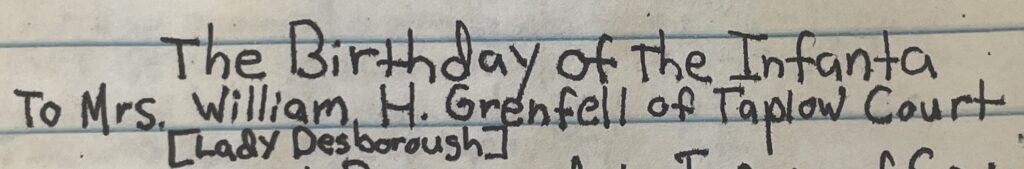 The Birthday of The Infanta
To Mrs. William, H. Grenfell of Taplow Court
[Lady Desborough]